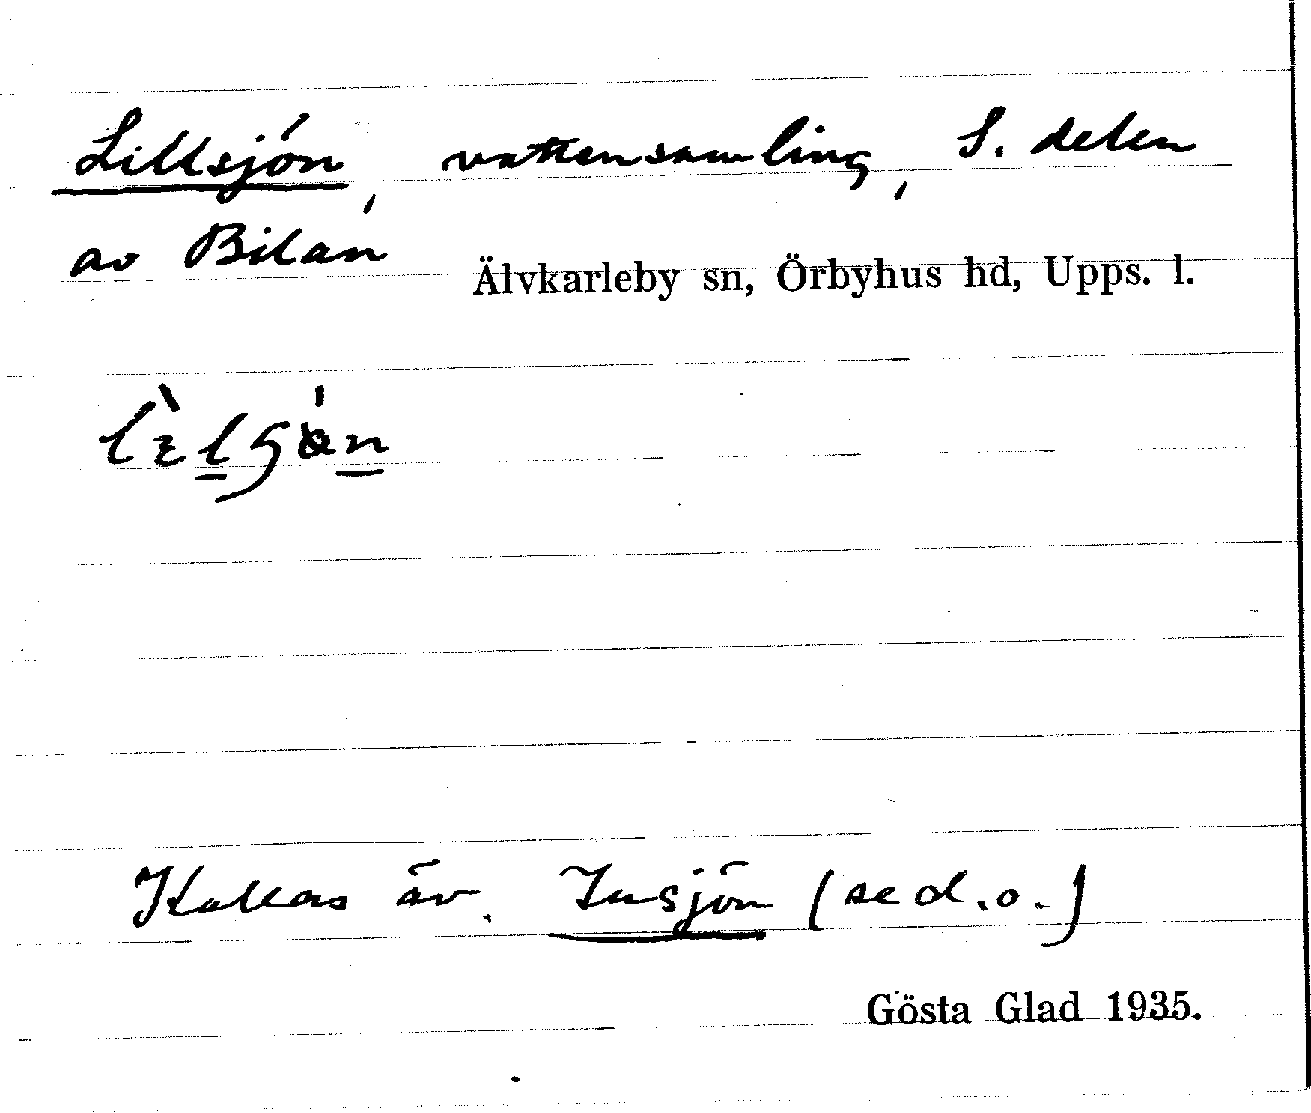 Lillsjön, vattensamling, S. delen
av Bilan
Älvkarleby sn, Örbyhus hd, Upps. l.
Kallas äv. Insjön (se d.o.)
Gösta Glad 1935.